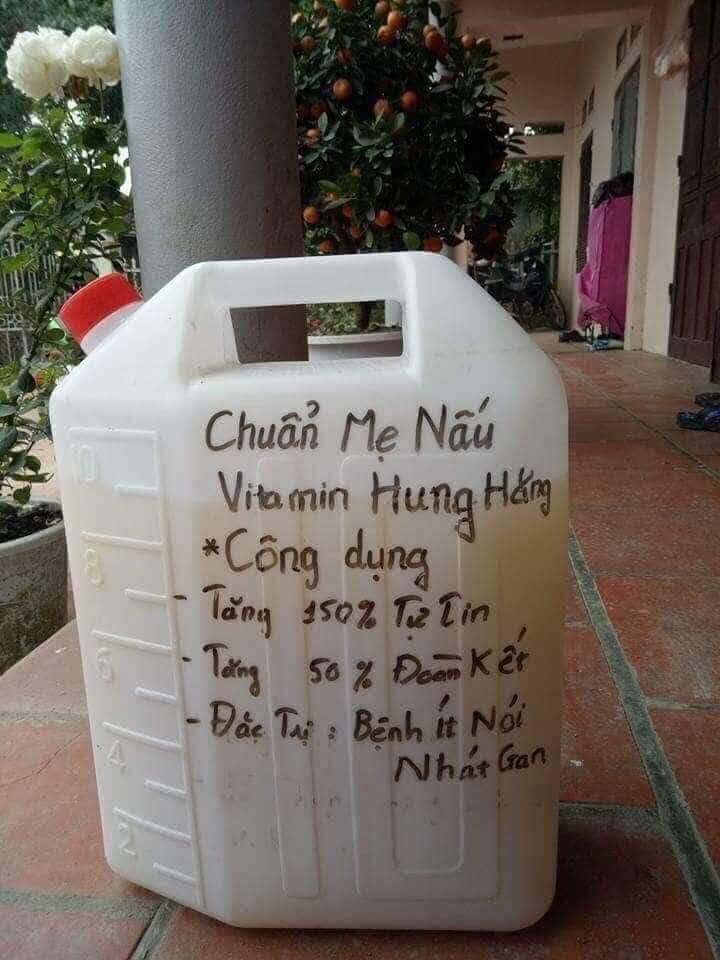 Chuẩn Mẹ Nấu
Vitamin Hung Hăng
*Công dụng
- Tăng 150% Tự Tin
- Tăng 50% Đoàn Kết
- Đặc Trị : Bệnh Ít Nói
Nhát Gan
10
8
6
4
2